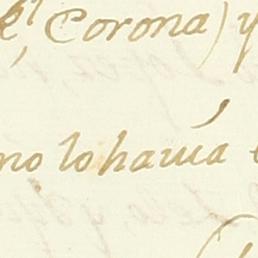 Corona) y
no lo havia